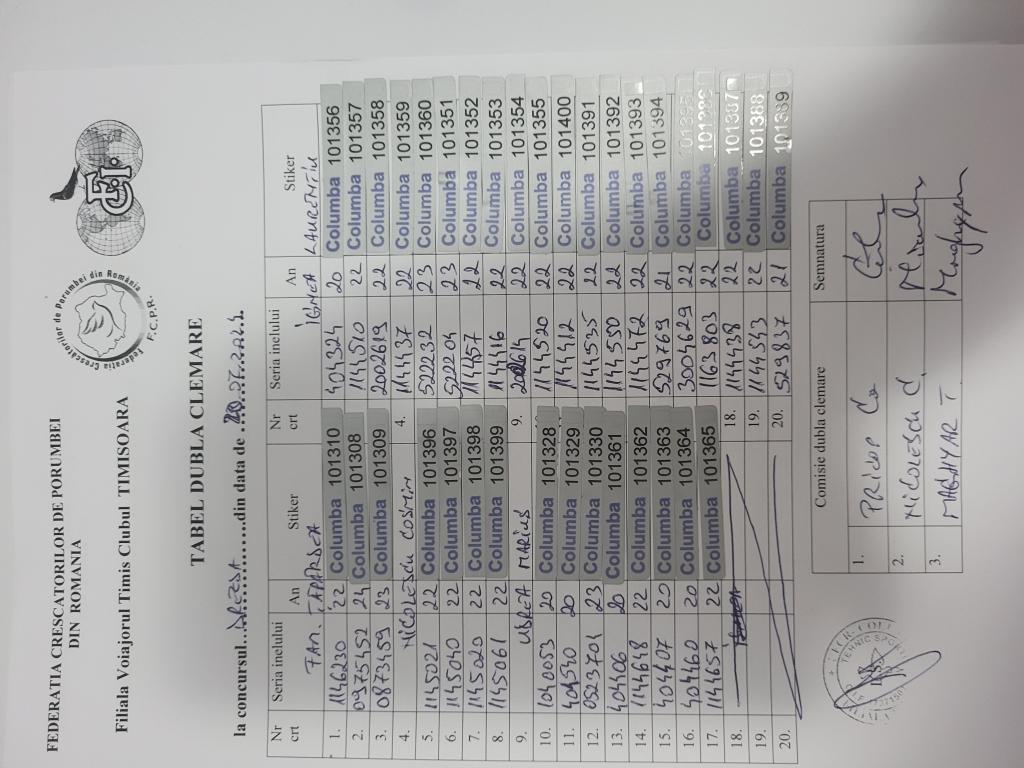 FEDERATIA CRESCATORILOR DE PORUMBEI
DIN ROMANIA
Filiala Voiajorul Timis Clubul TIMISOARA
Federația Crescătorilor de Porumbei din România
F.C.P.R.
FCI
TABEL DUBLA CLEMARE
la concursul....DRESDA............din data de
Nr crt Seria inelului An Stiker Nr crt Seria inelului An Stiker
FAN. IGNEA LAURENTIU
1. 1146230 22 Columba 101310 404324 20 Columba 101356
2. 0975452 24 Columba 101308 1144510 22 Columba 101357
3. 0873459 23 Columba 101309 2002619 22 Columba 101358
4. NICOLESCU COSMIN 4. 1144437 22 Columba 101359
5. 1145021 22 Columba 101396 522232 23 Columba 101360
6. 1145040 22 Columba 101397 522204 23 Columba 101351
7. 1145020 22 Columba 101398 1144157 22 Columba 101352
8. 1145061 22 Columba 101399 1144416 22 Columba 101353
9. UDREA MARIUS 9. 2002614 22 Columba 101354
10. 1040053 20 Columba 101328 1144520 22 Columba 101355
11. 404540 20 Columba 101329 1144412 22 Columba 101400
12. 0523701 23 Columba 101330 1144535 22 Columba 101391
13. 404406 20 Columba 101361 1144550 22 Columba 101392
14. 1144618 22 Columba 101362 1144442 22 Columba 101393
15. 404407 20 Columba 101363 529769 21 Columba 101394
16. 404460 20 Columba 101364 3004629 22 Columba 101395
17. 1144657 22 Columba 101365 1163803 22 Columba 101386
18. 18. 1144438 22 Columba 101387
19. 19. 1144543 22 Columba 101388
20. 20. 529837 21 Columba 101389
Comisie dubla clemare Semnatura
1. PRICOP
2. NICOLESCU C.
3. MAGHYAR T